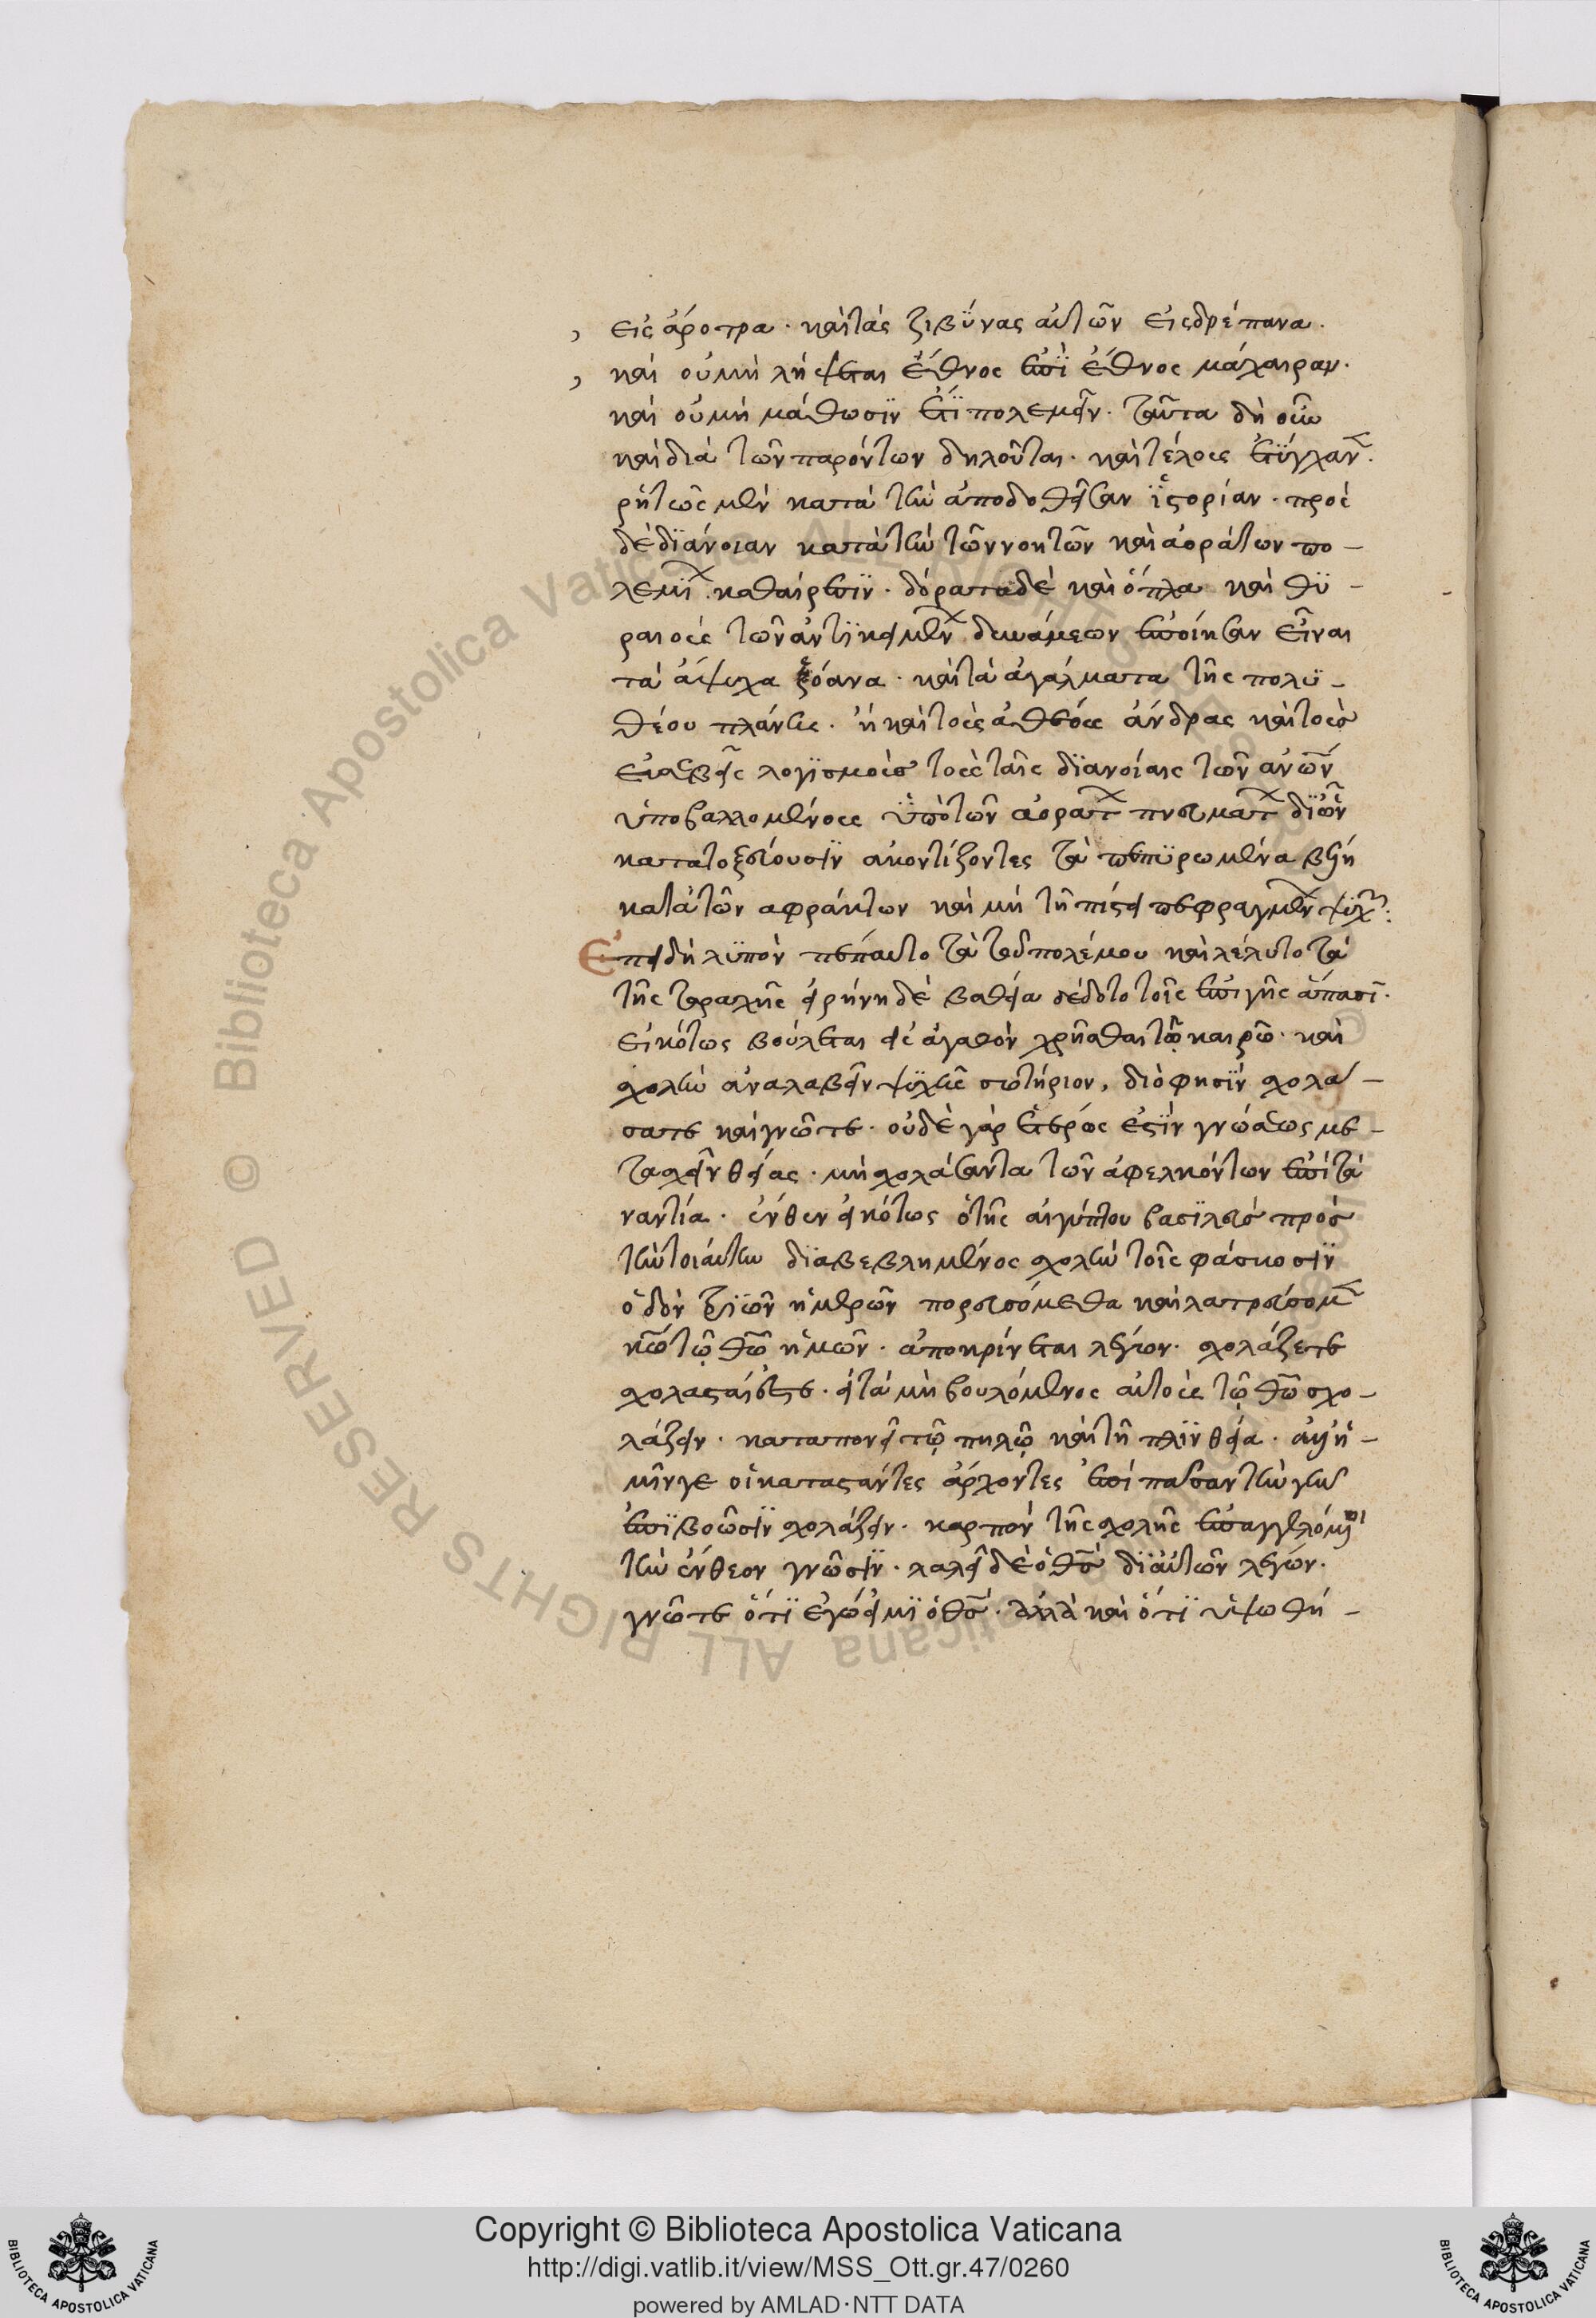 εἰς ἄροτρα· καὶ τὰς ζιβύνας αὐτῶν εἰς δρέπανα·
καὶ οὐ μὴ λήψεται ἔθνος ἐπὶ ἔθνος μάχαιραν·
καὶ οὐ μὴ μάθωσϊν ἔτϊ πολεμεῖν· ταῦτα δὴ οὖν
καὶ διὰ τῶν παρόντων δηλοῦται· καὶ τέλους ἐτύγχαν
ῥητῶς μὲν κατὰ τὴν ἀποδοθεῖσαν ἱστορίαν· πρὸς
δὲ δϊάνοιαν κατὰ τὴν τῶν νοητῶν καὶ ἀοράτων πο-
λεμϊ καθαίρεσϊν· δόρατα δὲ καὶ ὅπλα καὶ θϋ-
ραιοὺς τῶν ἀντϊκειμεν δυνάμεων ἐποίησαν εἶναι
τὰ ἄψυχα ξόανα· καὶ τὰ ἀγάλματα τῆς πολϋ-
θέου πλάνης· ἢ καὶ τοὺς ἀθέους ἄνδρας καὶ τοὺς
ἀσεβεῖς λογϊσμοὺς τοὺς ταῖς δϊανοίαις τῶν ἀνων
ὑποβαλλομένους ὑπὸ τῶν ἀορατ πνευματ δϊ ὧν
κατατοξεύουσϊν ἀκοντίζοντες τὰ πεπϋρωμένα βέλη
κατὰ τῶν ἀφράκτων καὶ μὴ τῆ πίστει πεφραγμεν ψϋχ:
Ἐπειδὴ λϋπὸν πέπαυτο τὰ τοῦ πολέμου καὶ λέλυτο τὰ
τῆς ταραχῆς εἰρήνη δὲ βαθεῖα δέδοτο τοῖς ἐπὶ γῆς ἅπασϊ·
εἰκότως βούλεται εἰς ἀγαθὸν χρῆσθαι τῷ καιρῷ· καὶ
σχολὴν ἀναλαβεῖν ψϋχῆς σωτήριον, διό φησϊν σχολά-
σατε καὶ γνῶτε· οὐδὲ γὰρ ἑτέρως ἐστϊν γνώσεως με-
ταλαχεῖν θείας· μὴ σχολάσαντα τῶν ἀφελκόντων ἐπὶ τἀ
ναντία· ἔνθεν εἰκότως ὁ τῆς αἰγύπτου βασϊλεὺς πρὸς
τὴν τοιάυτην δϊαβεβλημένος σχολὴν τοῖς φάσκουσϊν
ὁδὸν τρϊῶν ἡμερῶν πορευσόμεθα καὶ λατρεύσομ
κῶ τῷ θῶ ἡμῶν· ἀποκρίνεται λέγων· σχολάζετε
σχολασταί ἐστε· εἶτα μὴ βουλόμενος αὐτοὺς τῷ θῶ σχο-
λάζειν· καταπονεῖ τῷ πηλῷ καὶ τῆ πλϊνθεία· ἀλλ' ἡ-
μῖν γε οἱ καταστάντες ἄρχοντες ἐπὶ πᾶσαν τὴν γῆν
ἐπϊβοῶσϊν σχολάζειν· καρπὸν τῆς σχολῆς ἐπαγγελόμενοι
τὴν ἔνθεον γνῶσϊν· λαλεῖ δὲ ὁ θς δϊ αὐτῶν λέγων·
γνῶτε ὅτϊ ἐγώ εἰμϊ ὁ θς· ἀλλὰ καὶ ὅτϊ ὑψωθή-
© Biblioteca Apostolica Vaticana ALL RIGHTS RESERVED
Copyright © Biblioteca Apostolica Vaticana
http://digi.vatlib.it/view/MSS_Ott.gr.47/0260
powered by AMLAD·NTT DATA
BIBLIOTECA APOSTOLICA VATICANA
BIBLIOTECA APOSTOLICA VATICANA